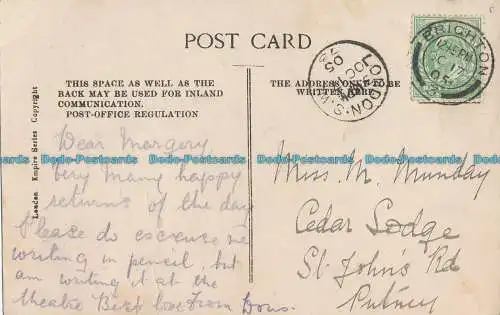 POST CARD
THIS SPACE AS WELL AS THE
BACK MAY BE USED FOR INLAND
COMMUNICATION.
POST-OFFICE REGULATION
THE ADDRESS ONLY TO BE
WRITTEN HERE
London Empire Series Copyright
BRIGHTON
OC 17
05
LONDON. S.W
OC
05
Dear Margery
Very many happy
returns of the day
Please do excuse me
writing in pencil, but
am writing it at the
theatre Best love from Doris.
Miss M. Munday
Cedar Lodge
St John's Rd
Putney
Dodo-Postcards Dodo-Postcards Dodo-Postcards Dodo-Postcards Dodo-Postcards